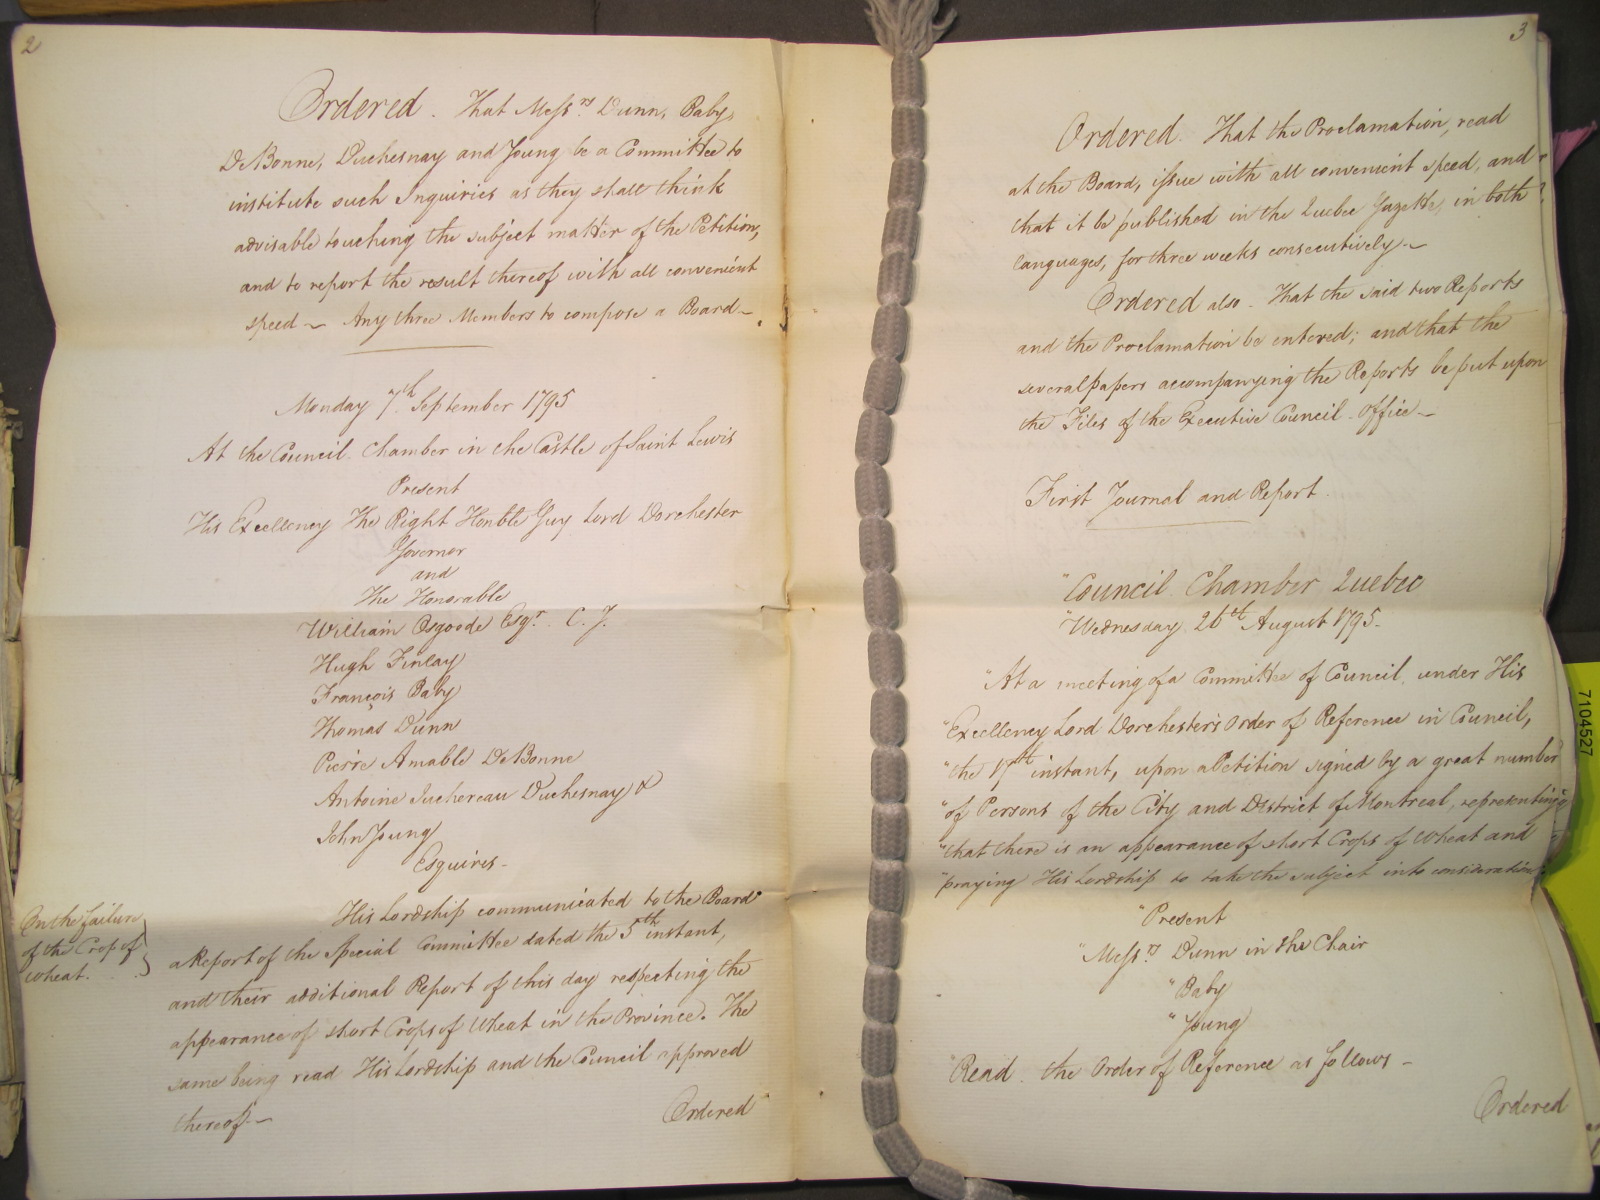 2
Ordered. That Mess.rs Dunn, Baby,
DeBonne, Duchesnay and Young be a Committee to
institute such Inquiries as they shall think
advisable touching the subject matter of the Petition,
and to report the result thereof with all convenient
speed ~ Any three Members to compose a Board ~
Monday 7.th September 1795
At the Council Chamber in the Castle of Saint Lewis
Present
His Excellency The Right Honble Guy Lord Dorchester
Governor
and
The Honorable
William Osgoode Esqr. C. J.
Hugh Finlay
François Baby
Thomas Dunn
Pierre Amable DeBonne
Antoine Juchereau Duchesnay &
John Young
Esquires -
On the failure
of the Crop of
Wheat.
His Lordship communicated to the Board
a Report of the Special Committee dated the 5th instant,
and their additional Report of this day respecting the
appearance of short Crops of Wheat in the Province. The
same being read His Lordship and the Council approved
thereof. ~
Ordered
3
Ordered. That the Proclamation, read
at the Board, issue with all convenient speed, and
that it be published in the Quebec Gazette, in both
languages, for three weeks consecutively. ~
Ordered also - That the said two Reports
and the Proclamation be entered; and that the
several papers accompanying the Reports be put upon
the Files of the Executive Council - Office ~
First Journal and Report.
"Council Chamber Quebec
"Wednesday 26th August 1795.
"At a meeting of a Committee of Council, under His
"Excellency Lord Dorchester's Order of Reference in Council,
"the 17th instant, upon a Petition signed by a great number
"of Persons of the City and District of Montreal, representing
"that there is an appearance of short Crops of Wheat and
"praying His Lordship to take the subject into consideration.
"Present
"Mess.rs Dunn in the Chair
"Baby
"Young
"Read. the Order of Reference as follows -
Ordered
7104527